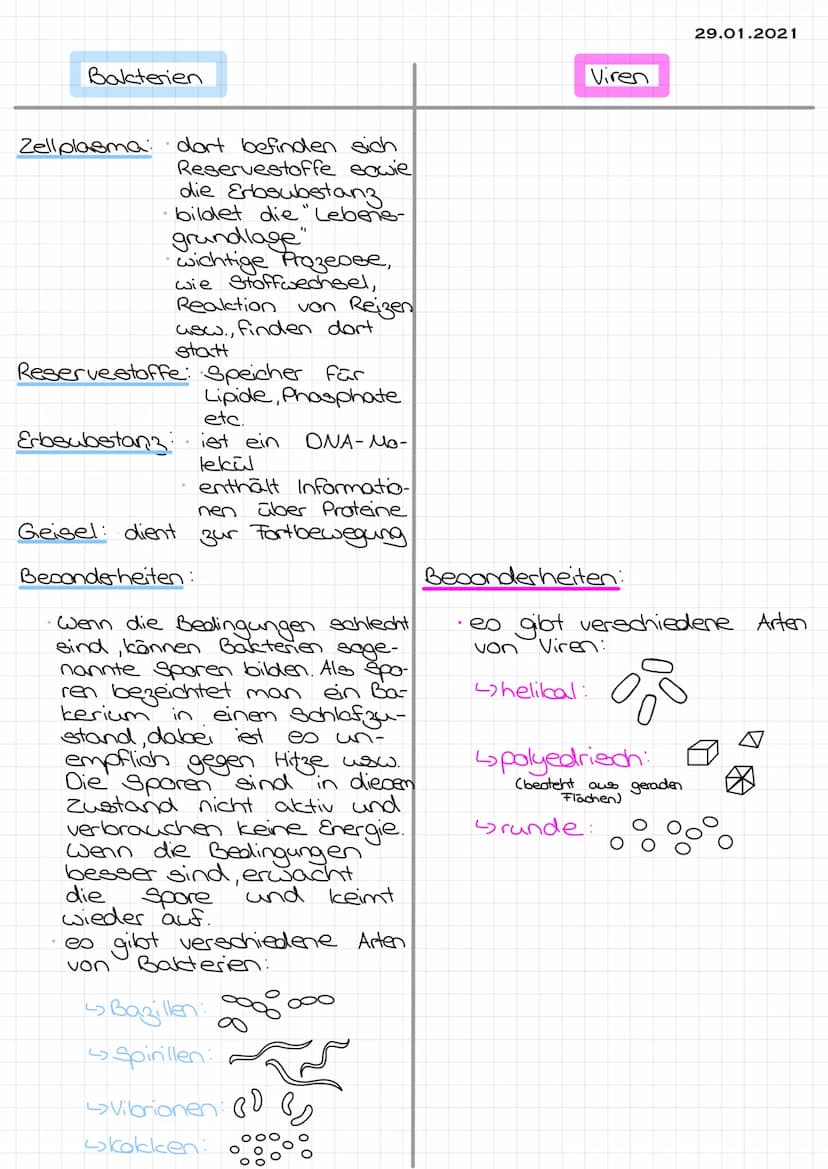 29.01.2021
Bakterien
Viren
Zellplasma: · dort befinden sich
Reservestoffe sowie
die Erbsubstanz
· bildet die "Lebens-
grundlage"
· wichtige Prozesse,
wie Stoffwechsel,
Reaktion von Reizen
usw., finden dort
statt
Reservestoffe: · Speicher für
Lipide, Phosphate
etc.
Erbsubstanz: · ist ein DNA-Mo-
lekül
· enthält Informatio-
nen über Proteine
Geisel: dient zur Fortbewegung
Besonderheiten:
· Wenn die Bedingungen schlecht
sind, können Bakterien soge-
nannte Sporen bilden. Als Spo-
ren bezeichtet man ein Ba-
kerium in einem Schlafzu-
stand, dabei ist es un-
empflich gegen Hitze usw.
Die Sporen sind in diesen
Zustand nicht aktiv und
verbrauchen keine Energie.
Wenn die Bedingungen
besser sind, erwacht
die Spore und keimt
wieder auf.
· es gibt verschiedene Arten
von Bakterien:
↳ Bazillen:
↳ Spirillen:
↳ Vibrionen:
↳ Kokken:
Besonderheiten:
· es gibt verschiedene Arten
von Viren:
↳ helikal:
↳ polyedrisch:
(besteht aus geraden
Flächen)
↳ runde: